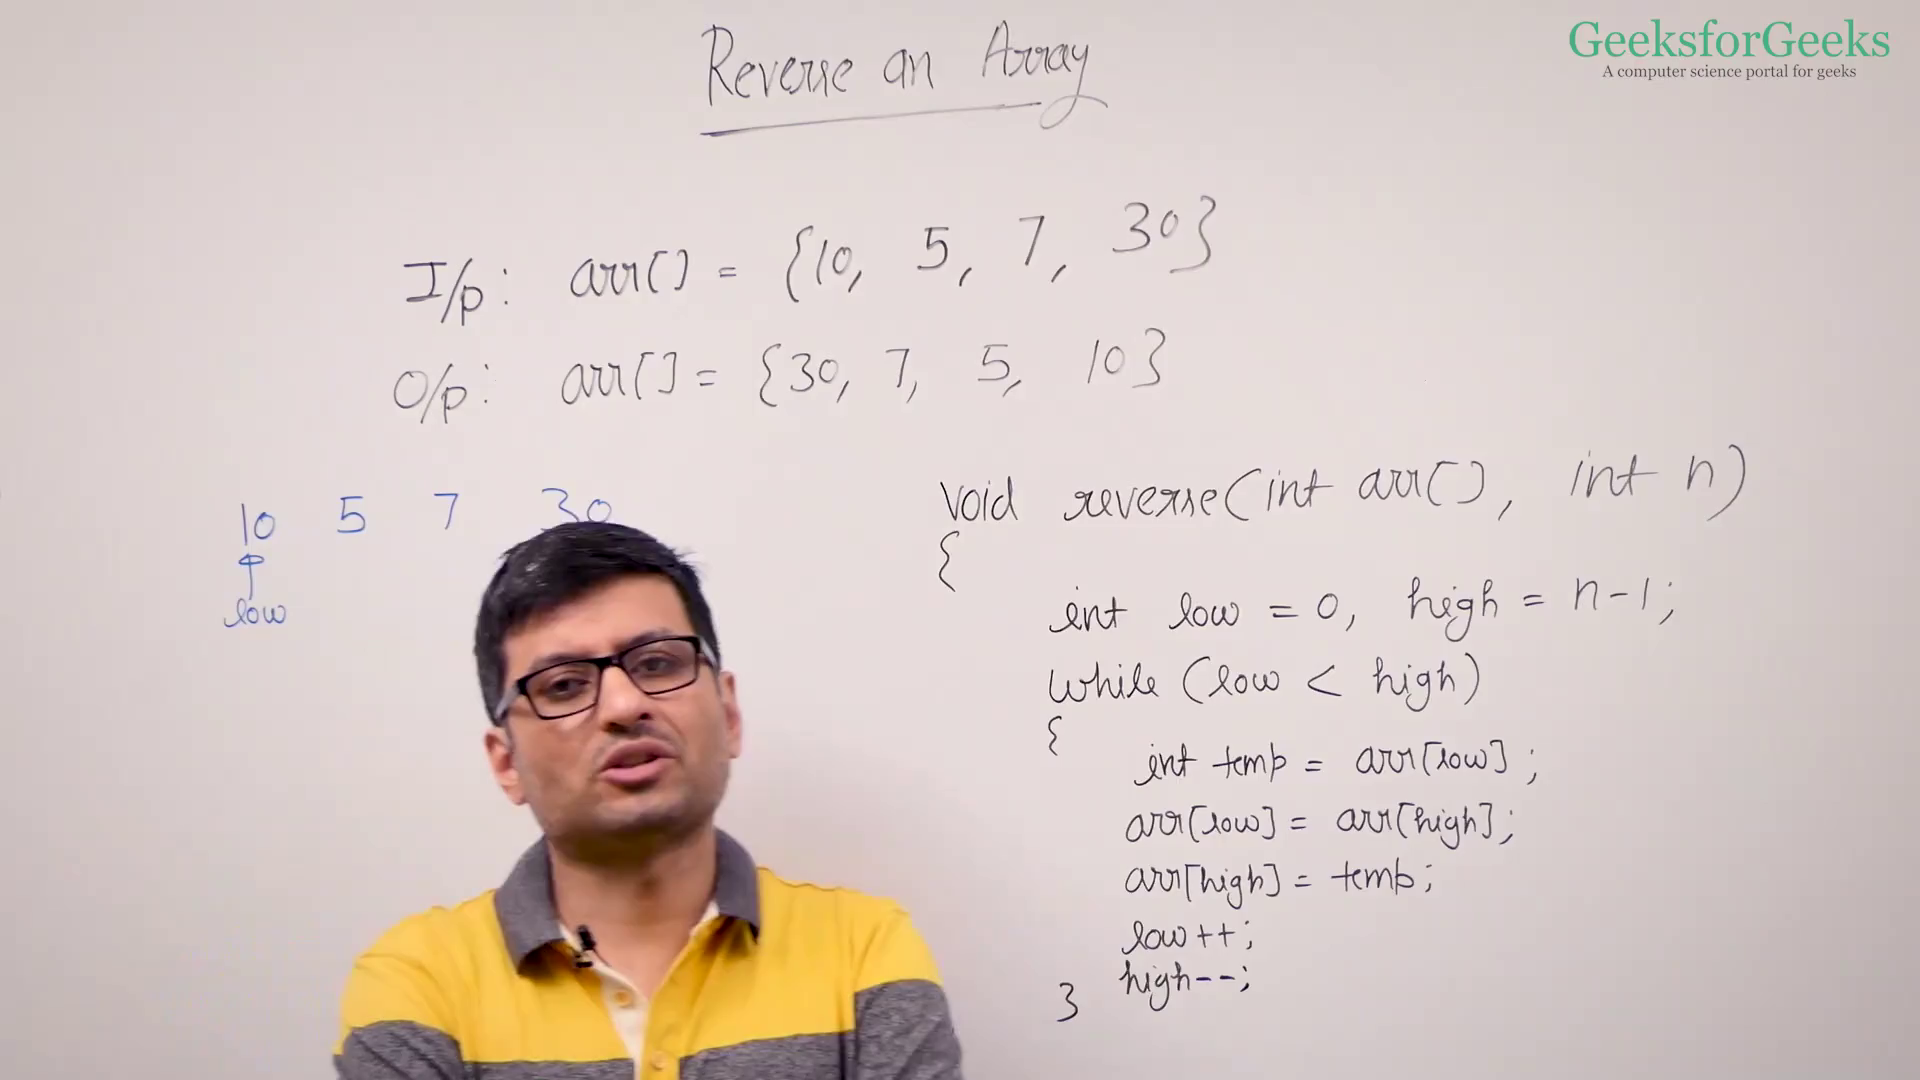 GeeksforGeeks
A computer science portal for geeks
Reverse an Array
I/p: arr[] = {10, 5, 7, 30}
O/p: arr[] = {30, 7, 5, 10}
10 5 7 30
low
void reverse(int arr[], int n)
{
int low = 0, high = n-1;
while (low < high)
{
int temp = arr[low];
arr[low] = arr[high];
arr[high] = temp;
low++;
high--;
}